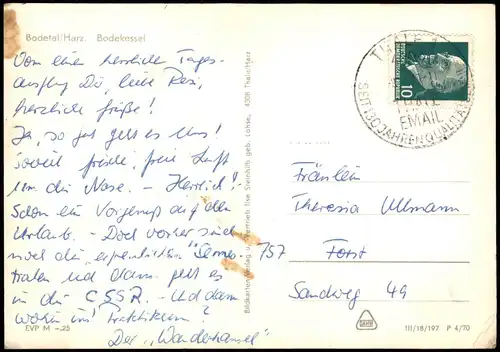 Bodetal/Harz. Bodekessel
Von einem herrlichen Tages-
ausflug Dir, liebe Resi,
herzliche Grüße!
Ja, so gut geht es Uns!
Soviel frische, freie Luft
um die Nase. – Herrlich!
Schon ein Vorgenuß auf den
Urlaub. – Doch vorher sind
noch die
und dann geht es
in die ČSSR. – Und dann
wohin ins Praktikum?
Der „Wanderhansel"
EVP M –.25
Bildkartenverlag u. Vertrieb Ilse Steinhilb geb. Lohse, 4308 Thale/Harz
THALE
DEUTSCHE DEMOKRATISCHE REPUBLIK
10
THALE
EMAIL
SEIT 130 JAHREN QUALITÄT
Fräulein
Theresia Ullmann
757 Forst
Sandweg 49
III/18/197 P 4/70